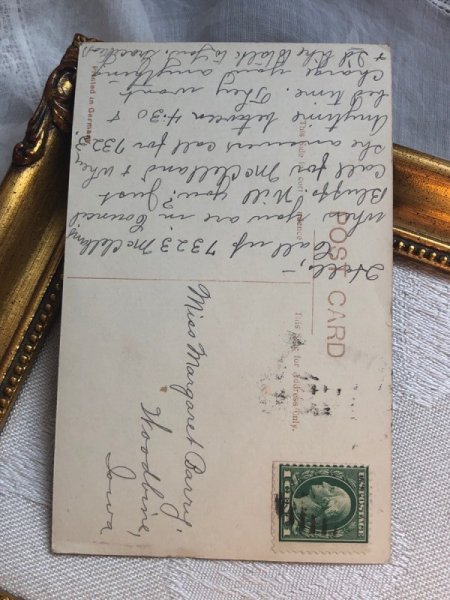 POST CARD
This Side is for Correspondence
This Side for Address Only.
Hello, –
Call up 7323 McClelland
when you are in Council
Bluffs. Will you? Just
call for McClelland + when
she answers call for 732
Anytime between 4:30 +
bed time. They wont
charge you anything
+ I'd like to talk to you,
Miss Margaret Barry,
Woodbine,
Iowa
Printed in Germany
U.S. POSTAGE
1 CENT 1